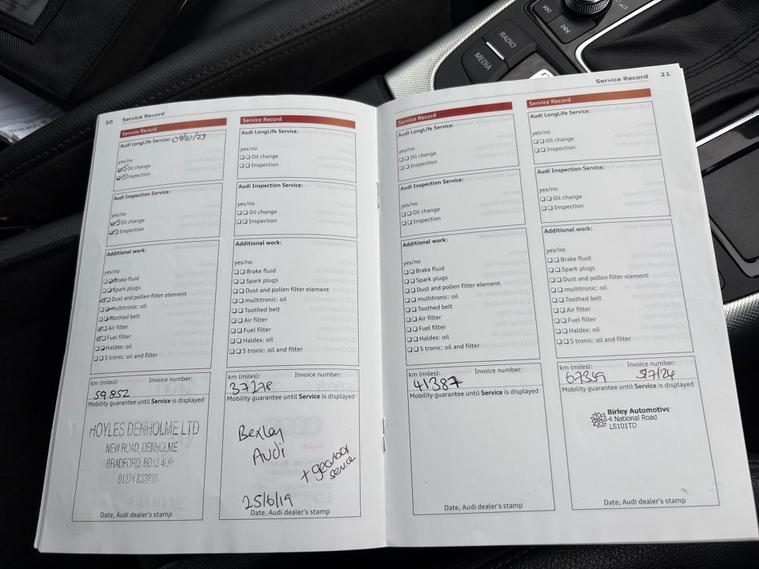 RADIO
MEDIA
20 Service Record
Service Record
Audi LongLife Service: 09/10/23
yes/no
Oil change
Inspection
Audi Inspection Service:
yes/no
Oil change
Inspection
Additional work:
yes/no
Brake fluid
Spark plugs
Dust and pollen filter element
multitronic: oil
Toothed belt
Air filter
Fuel filter
Haldex: oil
S tronic: oil and filter
km (miles): Invoice number:
59,852
Mobility guarantee until Service is displayed
HOYLES DENHOLME LTD
NEW ROAD, DENHOLME
BRADFORD, BD13 4DH
Date, Audi dealer's stamp
Service Record
Audi LongLife Service:
yes/no
Oil change
Inspection
Audi Inspection Service:
yes/no
Oil change
Inspection
Additional work:
yes/no
Brake fluid
Spark plugs
Dust and pollen filter element
multitronic: oil
Toothed belt
Air filter
Fuel filter
Haldex: oil
S tronic: oil and filter
km (miles): Invoice number:
37278
Mobility guarantee until Service is displayed
Bexley
Audi
+ gearbox
service
25/6/19
Date, Audi dealer's stamp
Service Record 21
Service Record
Audi LongLife Service:
yes/no
Oil change
Inspection
Audi Inspection Service:
yes/no
Oil change
Inspection
Additional work:
yes/no
Brake fluid
Spark plugs
Dust and pollen filter element
multitronic: oil
Toothed belt
Air filter
Fuel filter
Haldex: oil
S tronic: oil and filter
km (miles): Invoice number:
41387
Mobility guarantee until Service is displayed
Date, Audi dealer's stamp
Service Record
Audi LongLife Service:
yes/no
Oil change
Inspection
Audi Inspection Service:
yes/no
Oil change
Inspection
Additional work:
yes/no
Brake fluid
Spark plugs
Dust and pollen filter element
multitronic: oil
Toothed belt
Air filter
Fuel filter
Haldex: oil
S tronic: oil and filter
km (miles): Invoice number:
5/7/24
Mobility guarantee until Service is displayed
Birley Automotive
4 National Road
LS101TD
Date, Audi dealer's stamp